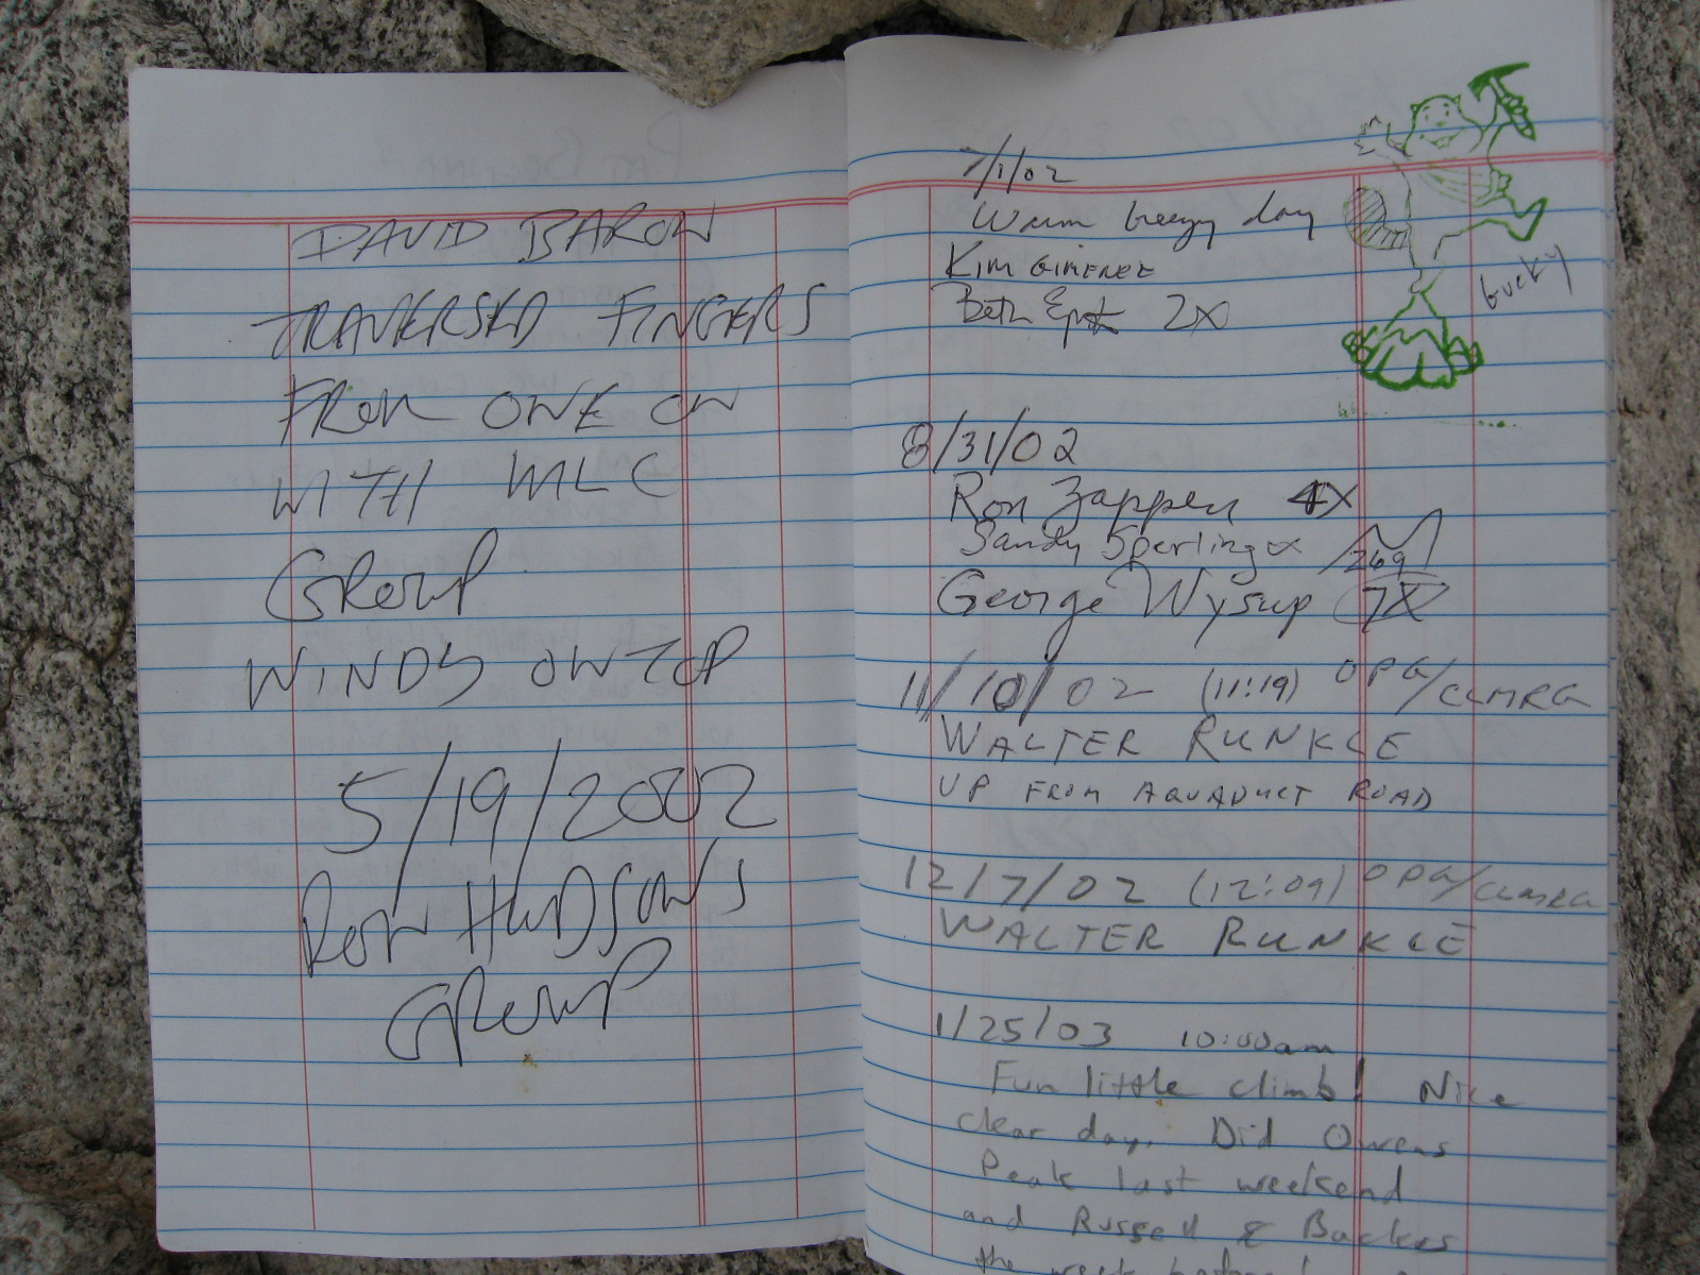 DAVID BARON
TRAVERSED FINGERS
FROM ONE ON
WITH WLC
GROUP
WINDY ON TOP
5/19/2002
RON HUDSON'S
GROUP
7/1/02
Warm breezy day
Kim GIMENEZ
Beth 2X
bucky
8/31/02
Ron Zappen 4X
Sandy Sperling 269
George Wysup 7X
11/10/02 (11:19) OPG/CLMRG
WALTER RUNKLE
UP FROM AQUADUCT ROAD
12/7/02 (12:09) OPG/CLMRG
WALTER RUNKLE
1/25/03 10:00am
Fun little climb! Nice
clear day. Did Owens
Peak last weekend
and Russell & Backus
the week before!